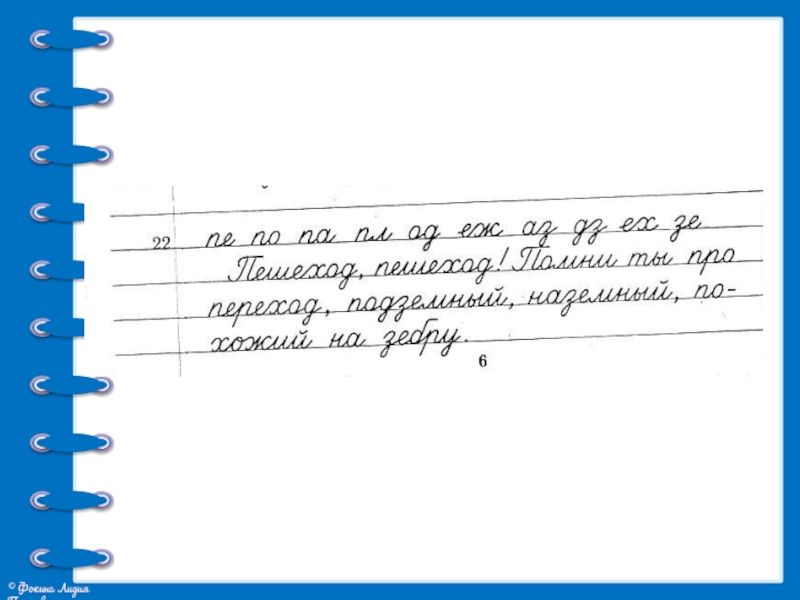 22 пе по па пл од еж аз дз ех зе
Пешеход, пешеход! Помни ты про
переход, подземный, наземный, по-
хожий на зебру.
6
© Фокина Лидия